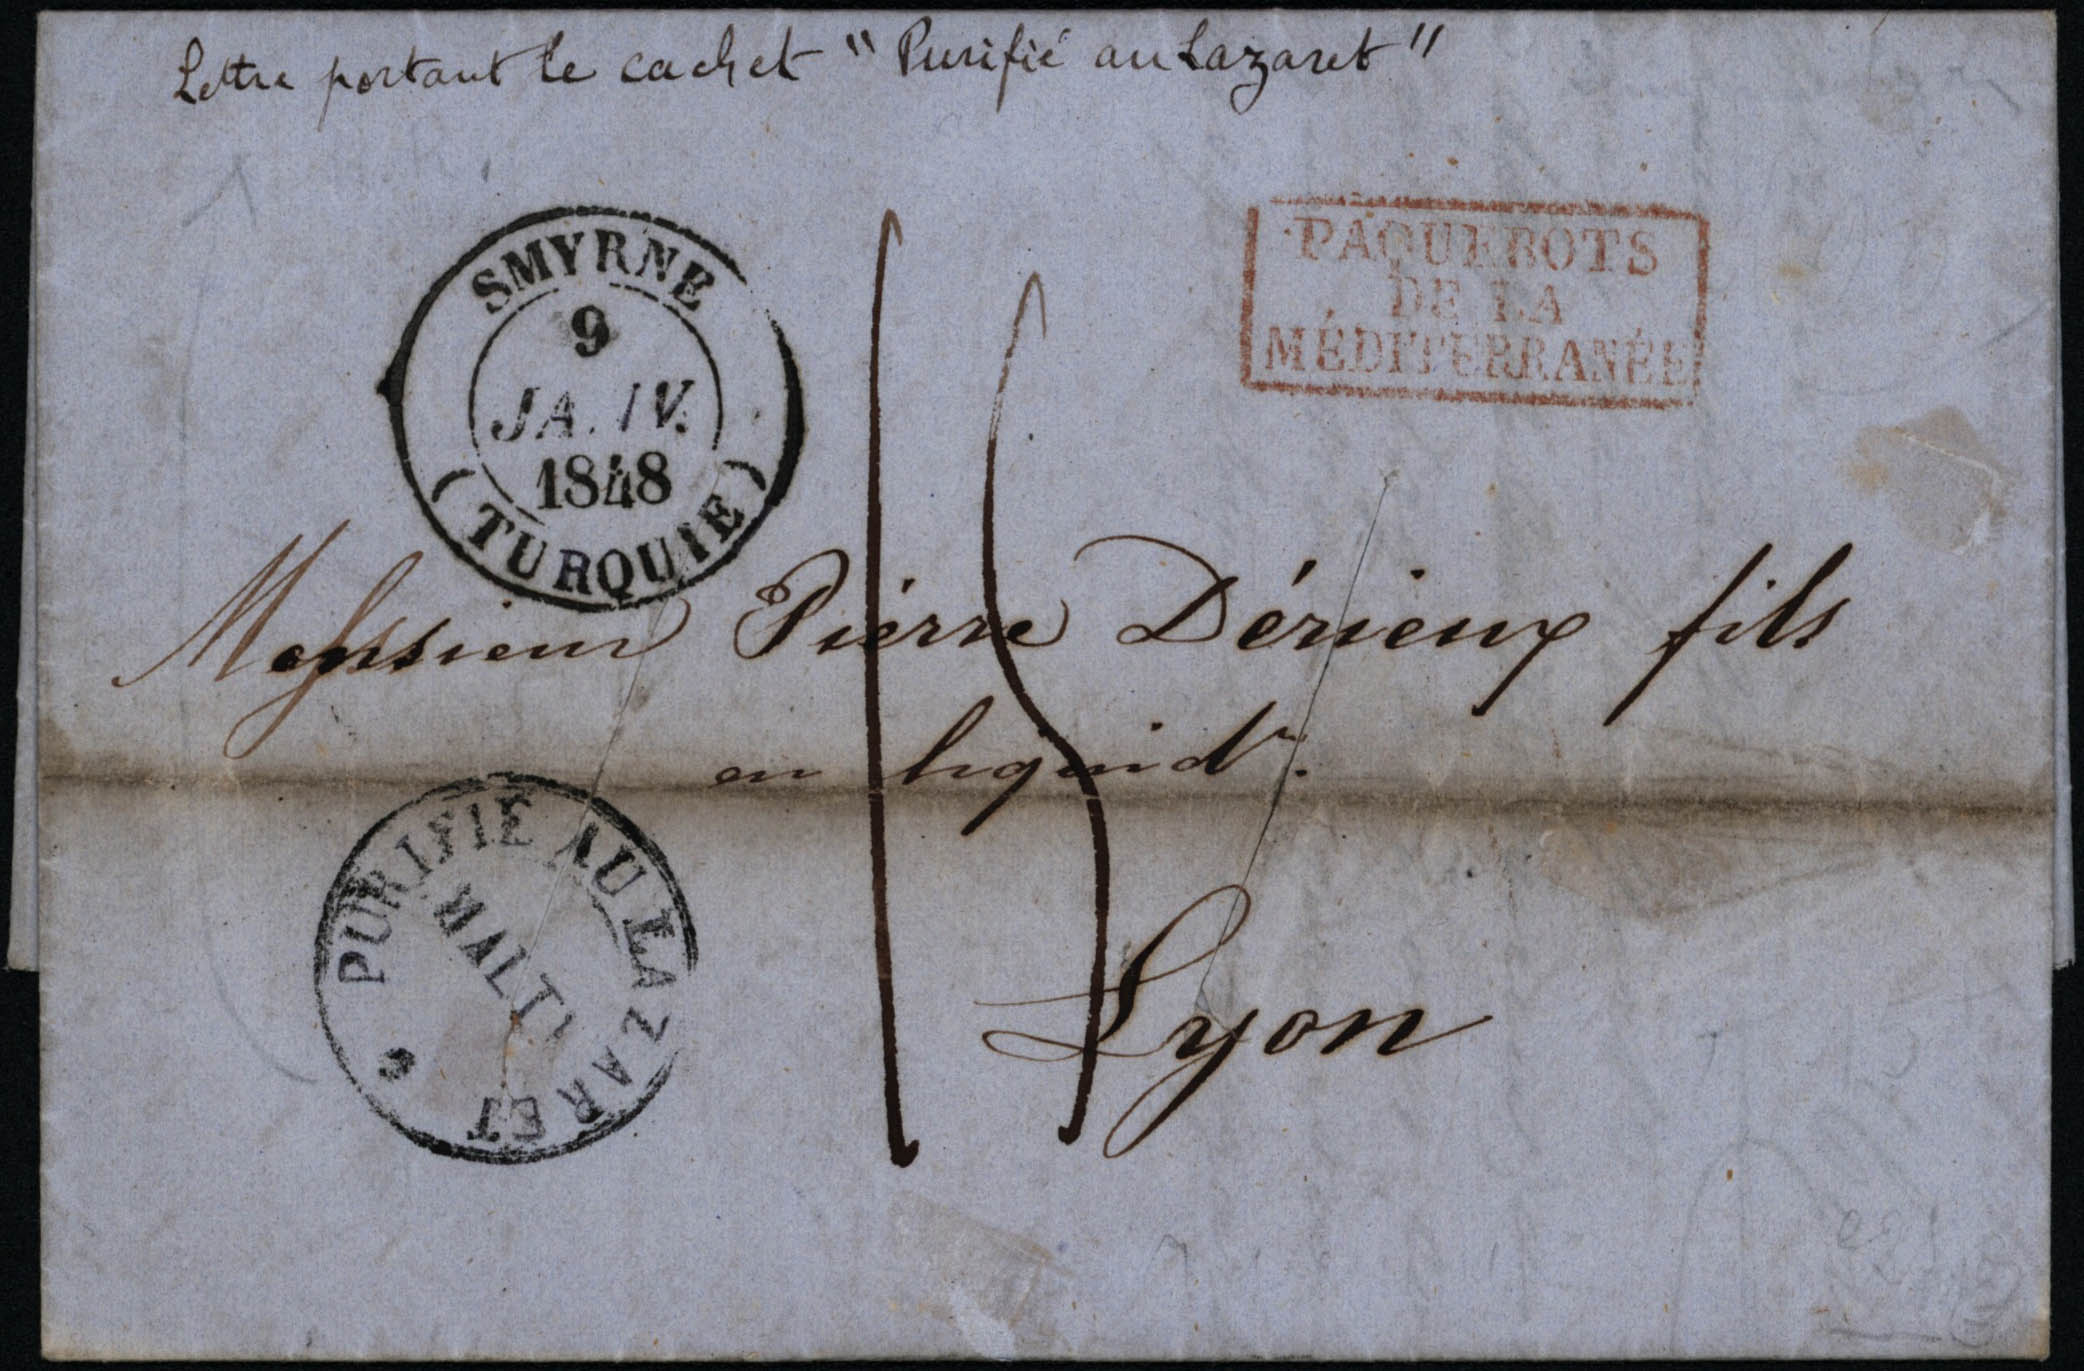 Lettre portant le cachet "Purifié au Lazaret"
SMYRNE
9
JANV.
1848
(TURQUIE)
PAQUEBOTS
DE LA
MÉDITERRANÉE
15
Monsieur Pierre Dérieux fils
en liquidon.
Lyon
PURIFIÉ AU LAZARET
MALTE